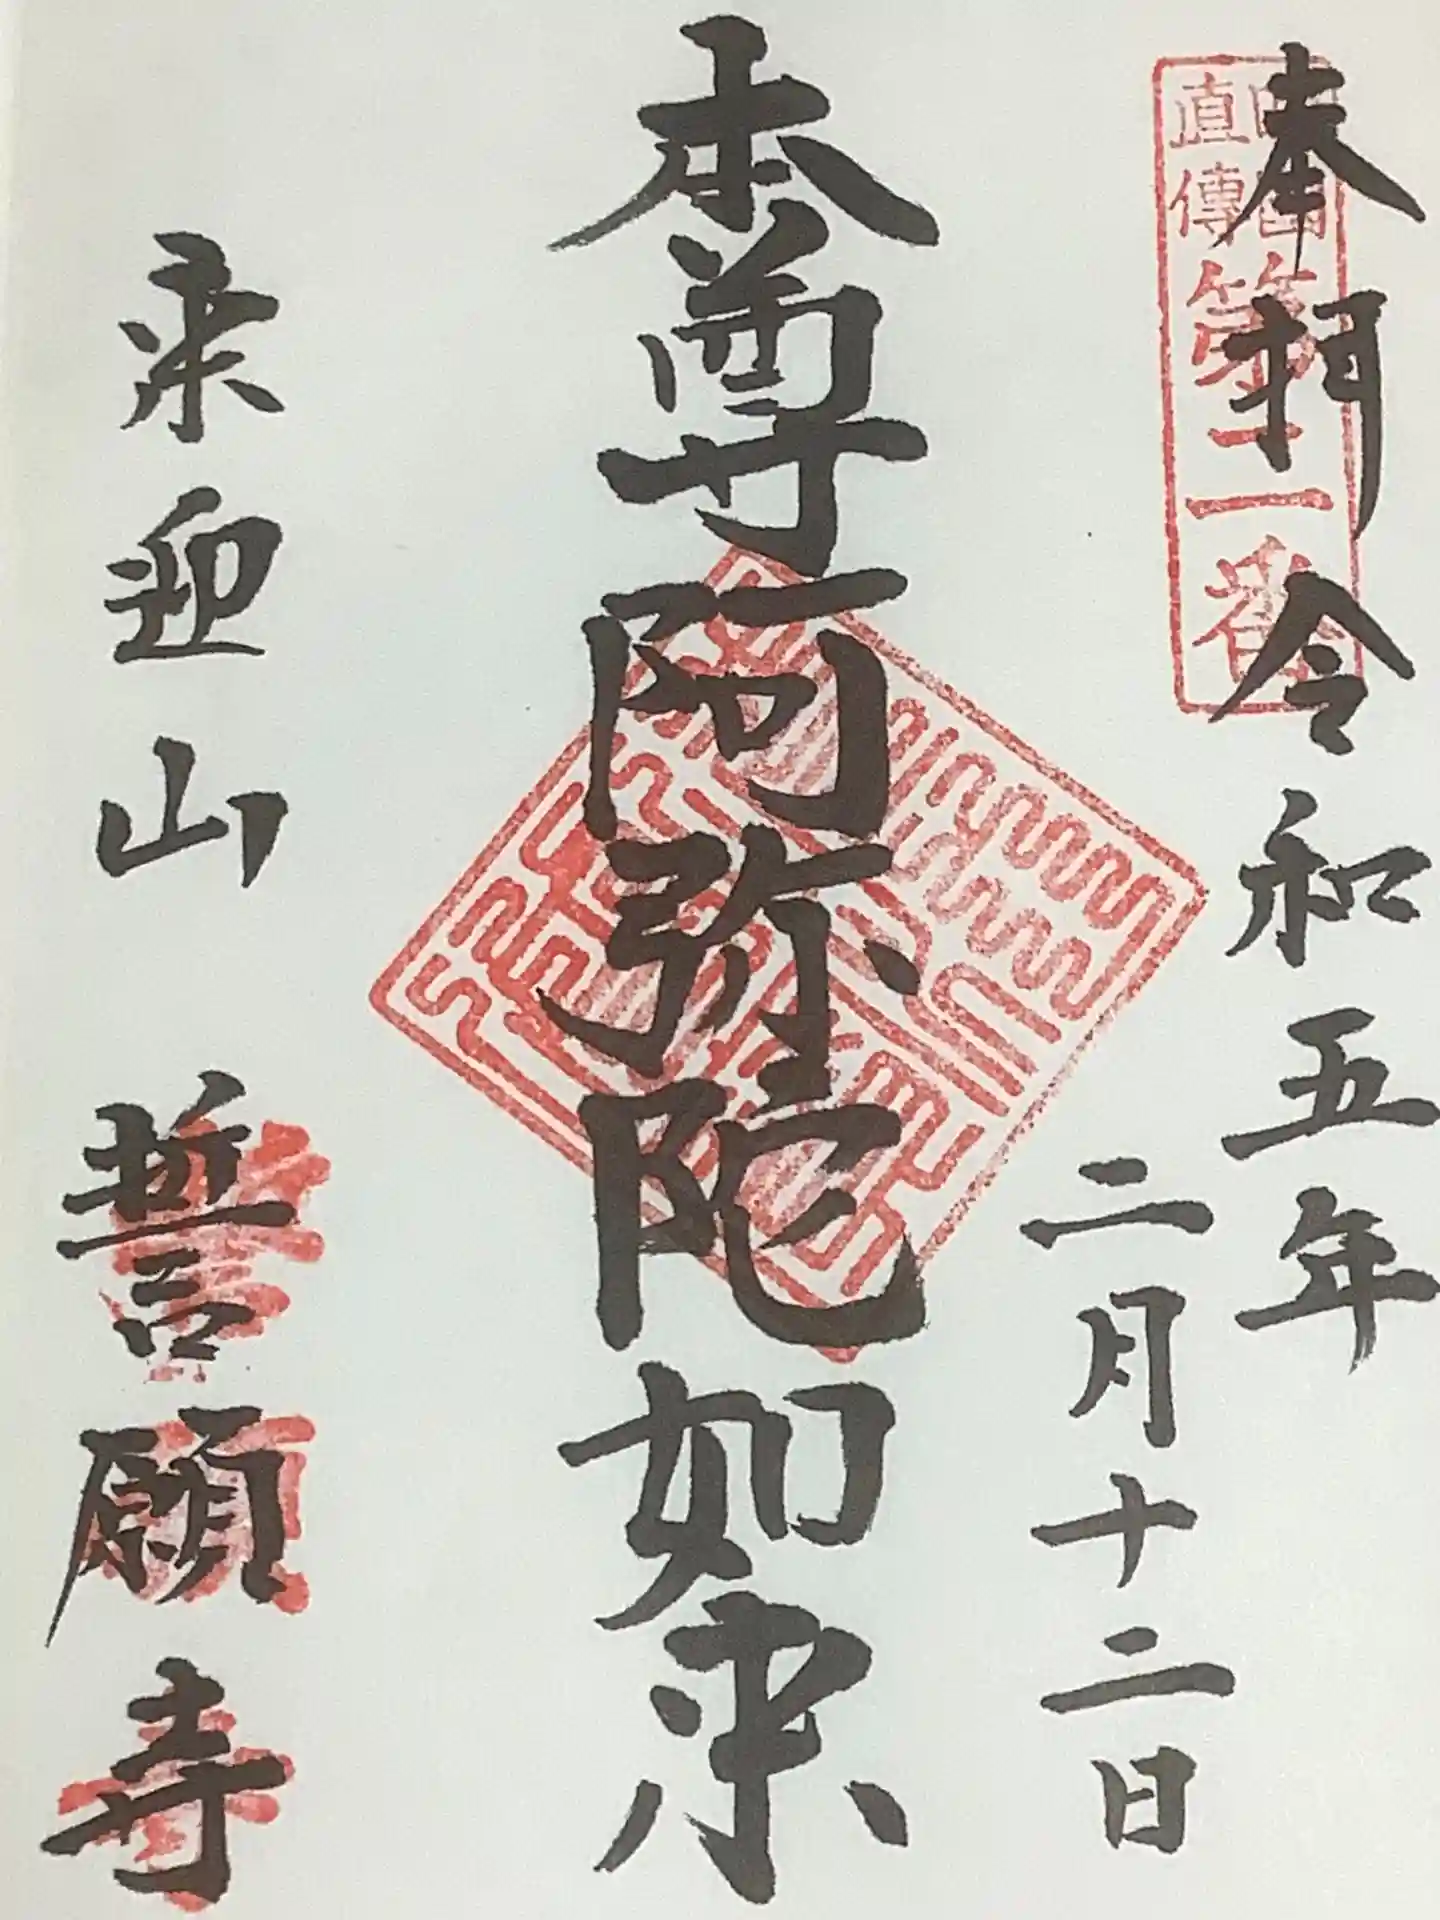 四國直傳第二番
奉拝 令和五年
二月十二日
本尊阿弥陀如来
来迎山 誓願寺